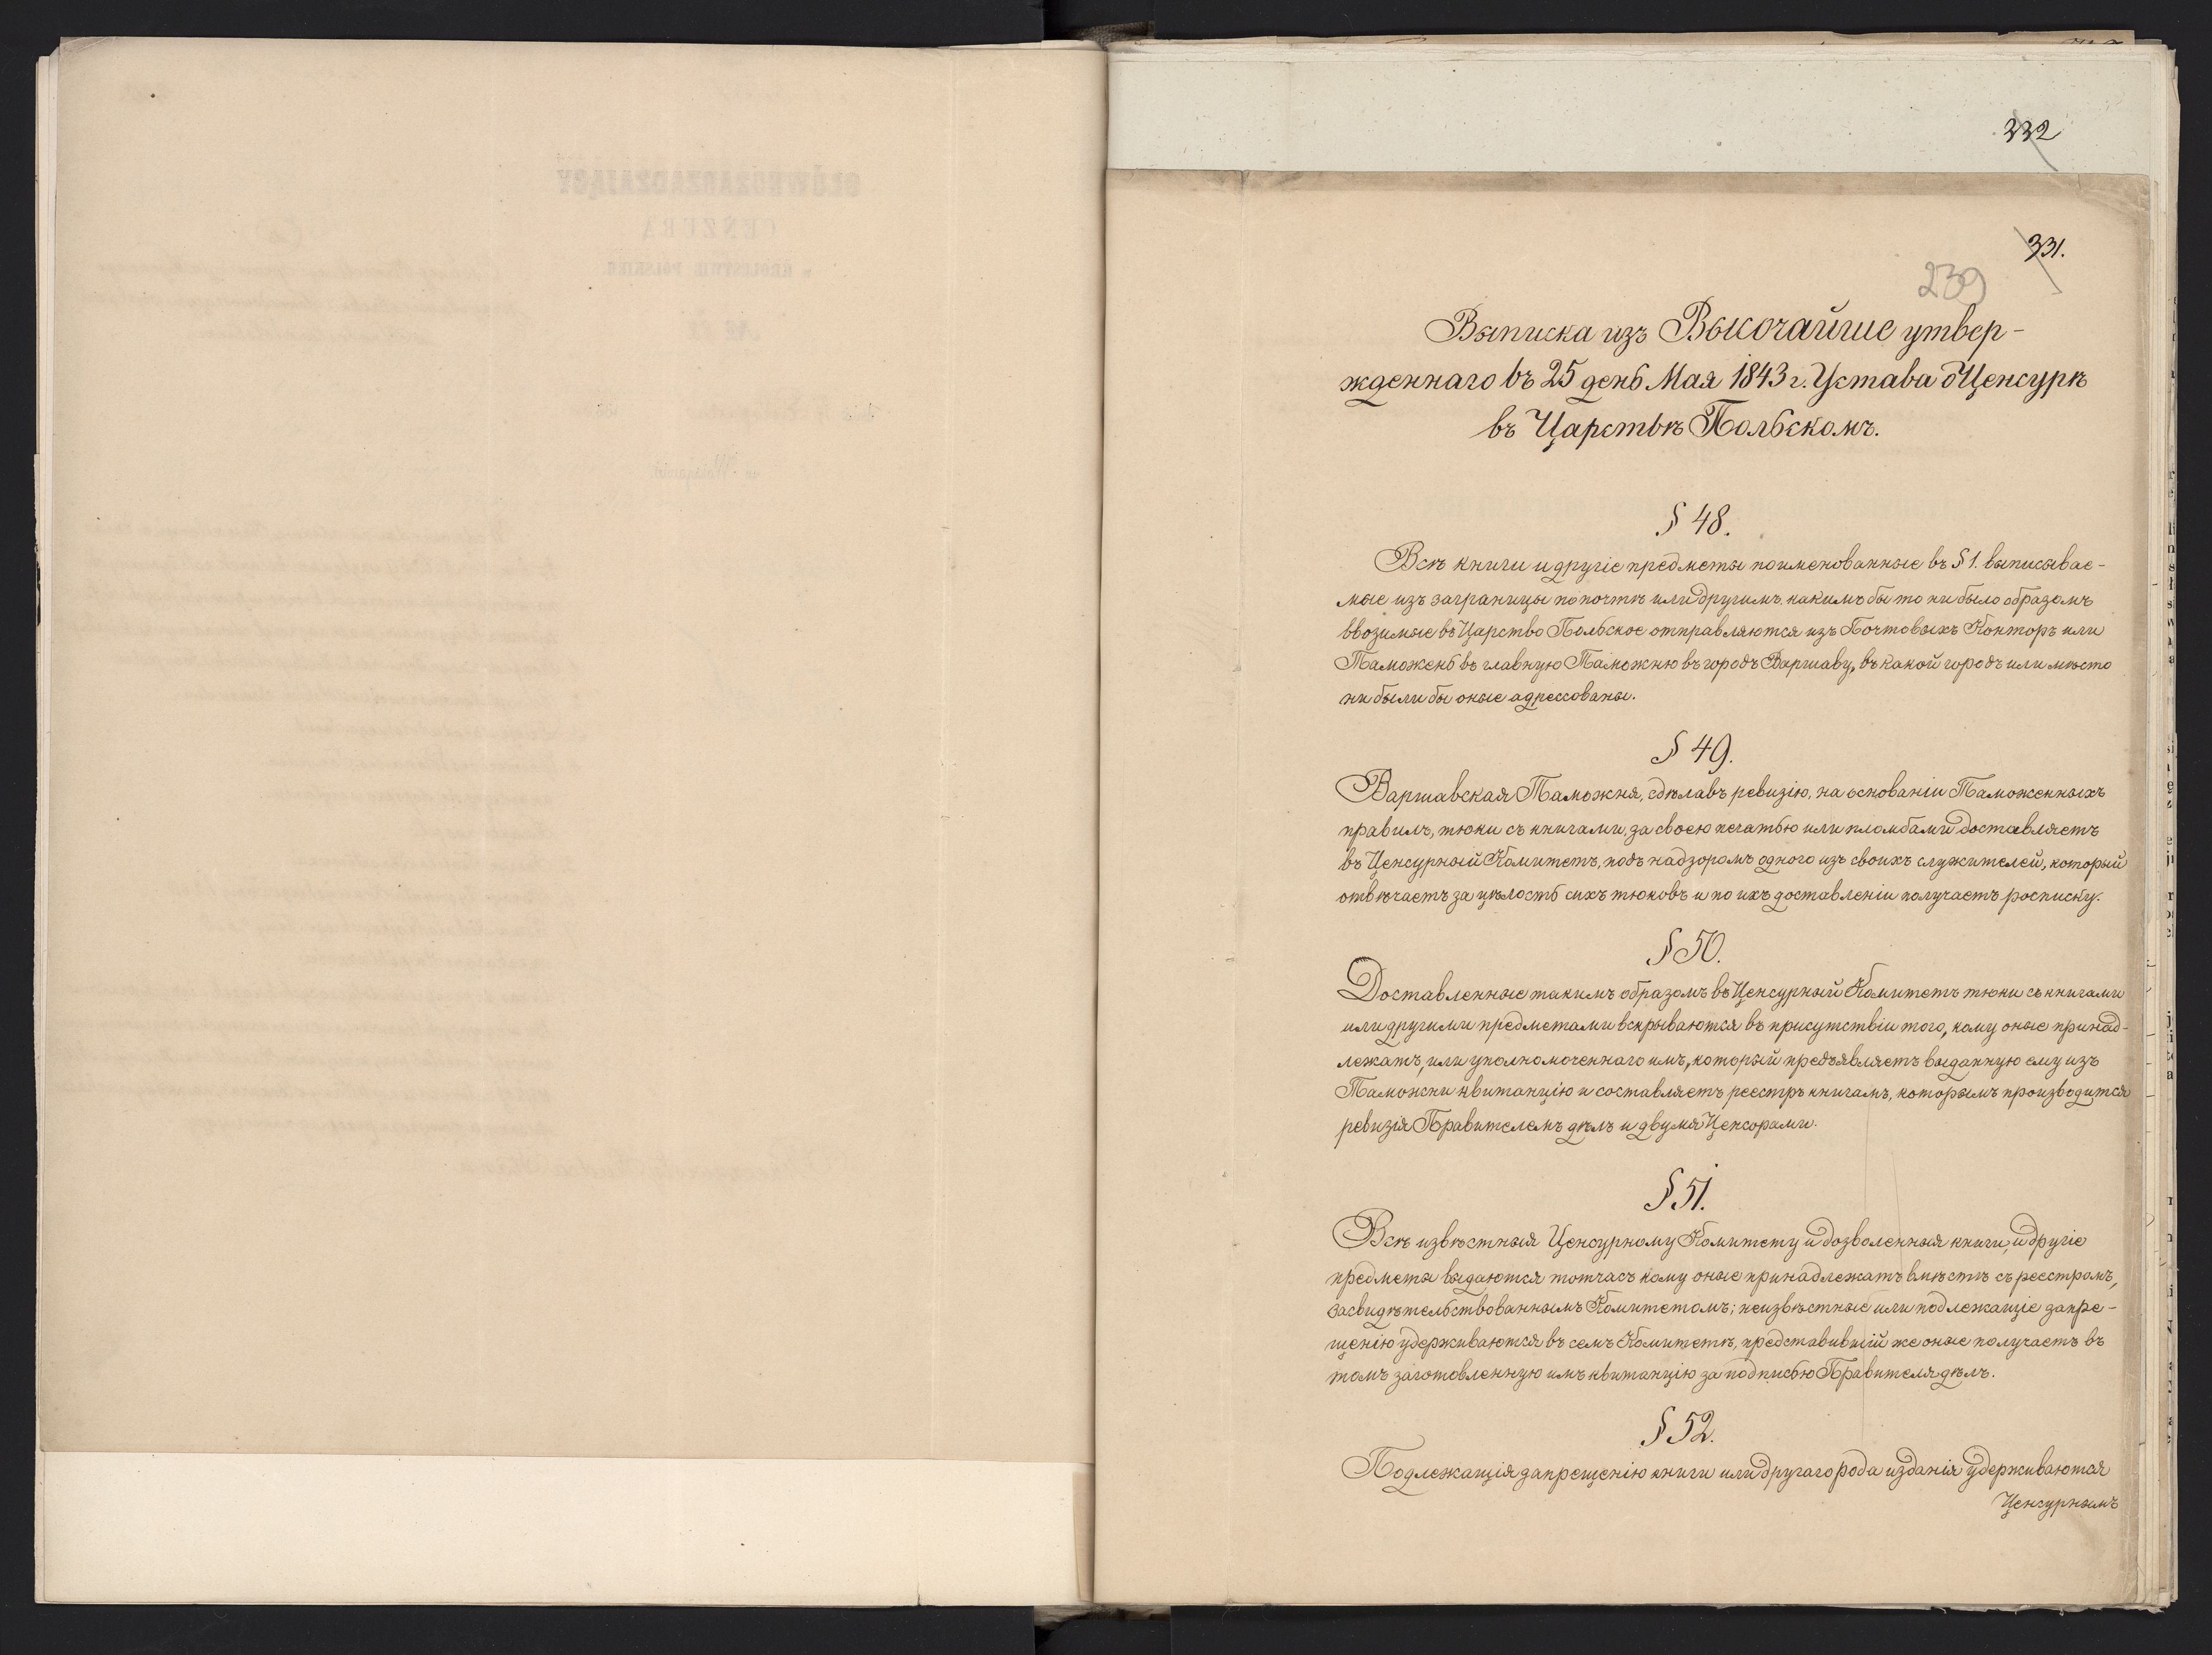 332
331.
239
Выписка изъ Высочайше утвер-
жденнаго въ 25 день Мая 1843 г. Устава о Ценсурѣ
въ Царствѣ Польскомъ.
§ 48.
Всѣ книги и другіе предметы поименованные въ § 1. выписывае-
мые изъ заграницы по почтѣ или другимъ какимъ бы то ни было образомъ
ввозимые въ Царство Польское отправляются изъ Почтовыхъ Конторъ или
Таможень въ главную Таможню въ городъ Варшаву, въ какой городъ или мѣсто
ни были бы оные адрессованы.
§ 49.
Варшавская Таможня, сдѣлавъ ревизію, на основаніи Таможенныхъ
правилъ, тюки съ книгами, за своею печатью или пломбами доставляетъ
въ Ценсурный Комитетъ, подъ надзоромъ одного изъ своихъ служителей, который
отвѣчаетъ за цѣлость сихъ тюковъ и по ихъ доставленіи получаетъ росписку.
§ 50.
Доставленные такимъ образомъ въ Ценсурный Комитетъ тюки съ книгами
или другими предметами вскрываются въ присутствіи того, кому оные принад-
лежатъ, или уполномоченнаго имъ, который предъявляетъ выданную ему изъ
Таможни квитанцію и составляетъ реестръ книгамъ, которымъ производится
ревизія Правителемъ дѣлъ и двумя Ценсорами.
§ 51.
Всѣ извѣстныя Ценсурному Комитету и дозволенныя книги, и другіе
предметы выдаются тотчасъ кому оные принадлежатъ вмѣстѣ съ реестромъ,
засвидѣтельствованнымъ Комитетомъ; неизвѣстные или подлежащіе запре-
щенію удерживаются въ семъ Комитетѣ, представившій же оные получаетъ въ
томъ заготовленную имъ квитанцію за подписью Правителя дѣлъ.
§ 52.
Подлежащія запрещенію книги или другаго рода изданія удерживаются
Ценсурнымъ